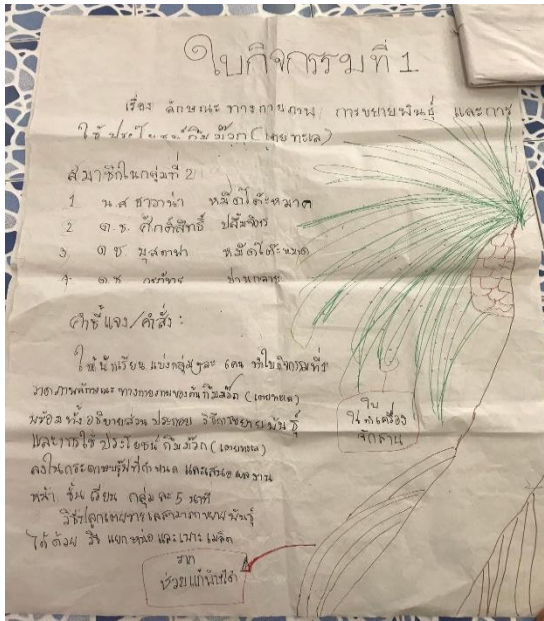 ใบกิจกรรมที่ 1
เรื่อง ลักษณะทางกายภาพ การขยายพันธุ์ และการ
ใช้ประโยชน์กีมม๊วก (เตยทะเล)
สมาชิกในกลุ่มที่ 2
1 น.ส ธาราน่า หมีดโต๊ะหมาด
2 ด.ช. ศักดิ์สิทธิ์
3. ด ช มุสตาฟา หมีดโต๊ะหมาด
4. ด.ช
คำชี้แจง/คำสั่ง :
ให้นักเรียนแบ่งกลุ่มๆละ 6คน ทำใบกิจกรรมที่1
วาดภาพลักษณะทางกายภาพของต้นกีมม๊วก (เตยทะเล)
พร้อมทั้งอธิบายส่วนประกอบ วิธีการขยายพันธุ์
และการใช้ประโยชน์กีมม๊วก (เตยทะเล)
ลงในกระดาษบรู๊ฟที่กำหนด และเสนอผลงาน
หน้า ชั้นเรียน กลุ่มละ 5 นาที
วิธีปลูกเตยทะเลสามารถขยายพันธุ์
ได้ด้วย วิธี แยกหน่อ และเพาะเมล็ด
ใบ
นำเครื่อง
จักสาน
ราก
ช่วยแก้พิษได้